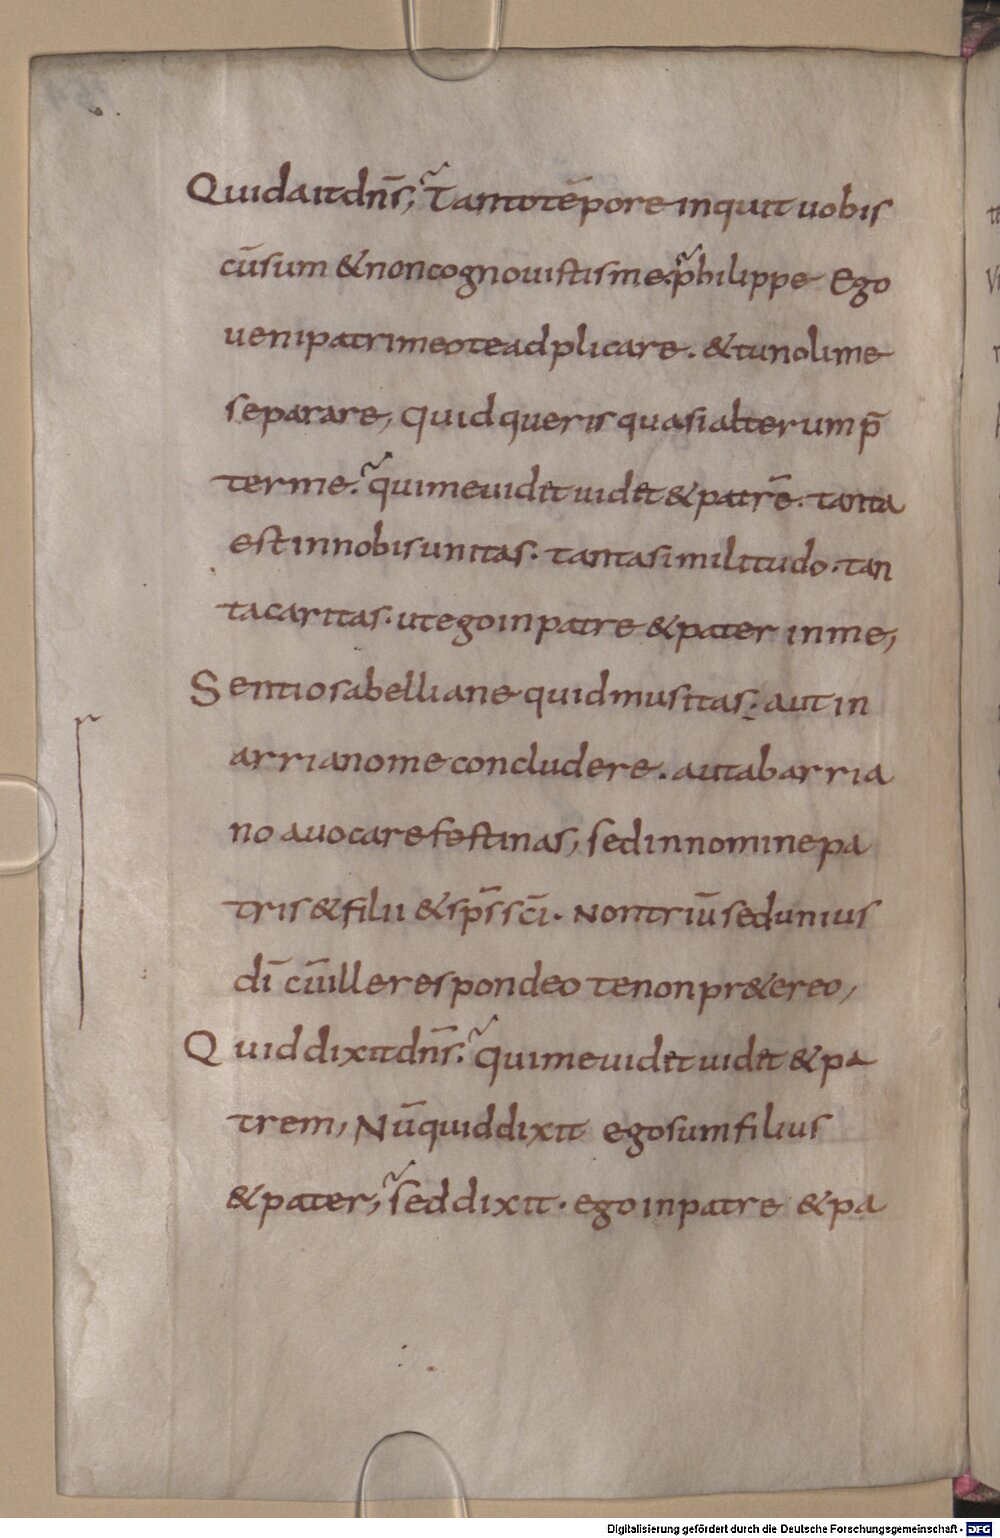 Quid ait dn̄s; Tanto tēpore inquit uobis
cū sum & non cognouistis me. philippe Ego
ueni patri meo te adplicare. & tu noli me
separare, Quid queris quasi alterum p̄
ter me. qui me uidet uidet & patrē. tanta
est in nobis unitas. tanta similitudo. tan
ta caritas. ut ego in patre & pater in me,
Sentio sabelliane quid musitas. aut in
arriano me concludere. aut ab arria
no auocare festinas, sed in nomine pa
tris & filii & sp̄s sc̄i. Non triū sed unius
dī cū ille respondeo te non pr&ereo,
Quid dixit dn̄s. qui me uidet uidet & pa
trem, Nūquid dixit ego sum filius
& pater, sed dixit. ego in patre & pa
Digitalisierung gefördert durch die Deutsche Forschungsgemeinschaft - DFG